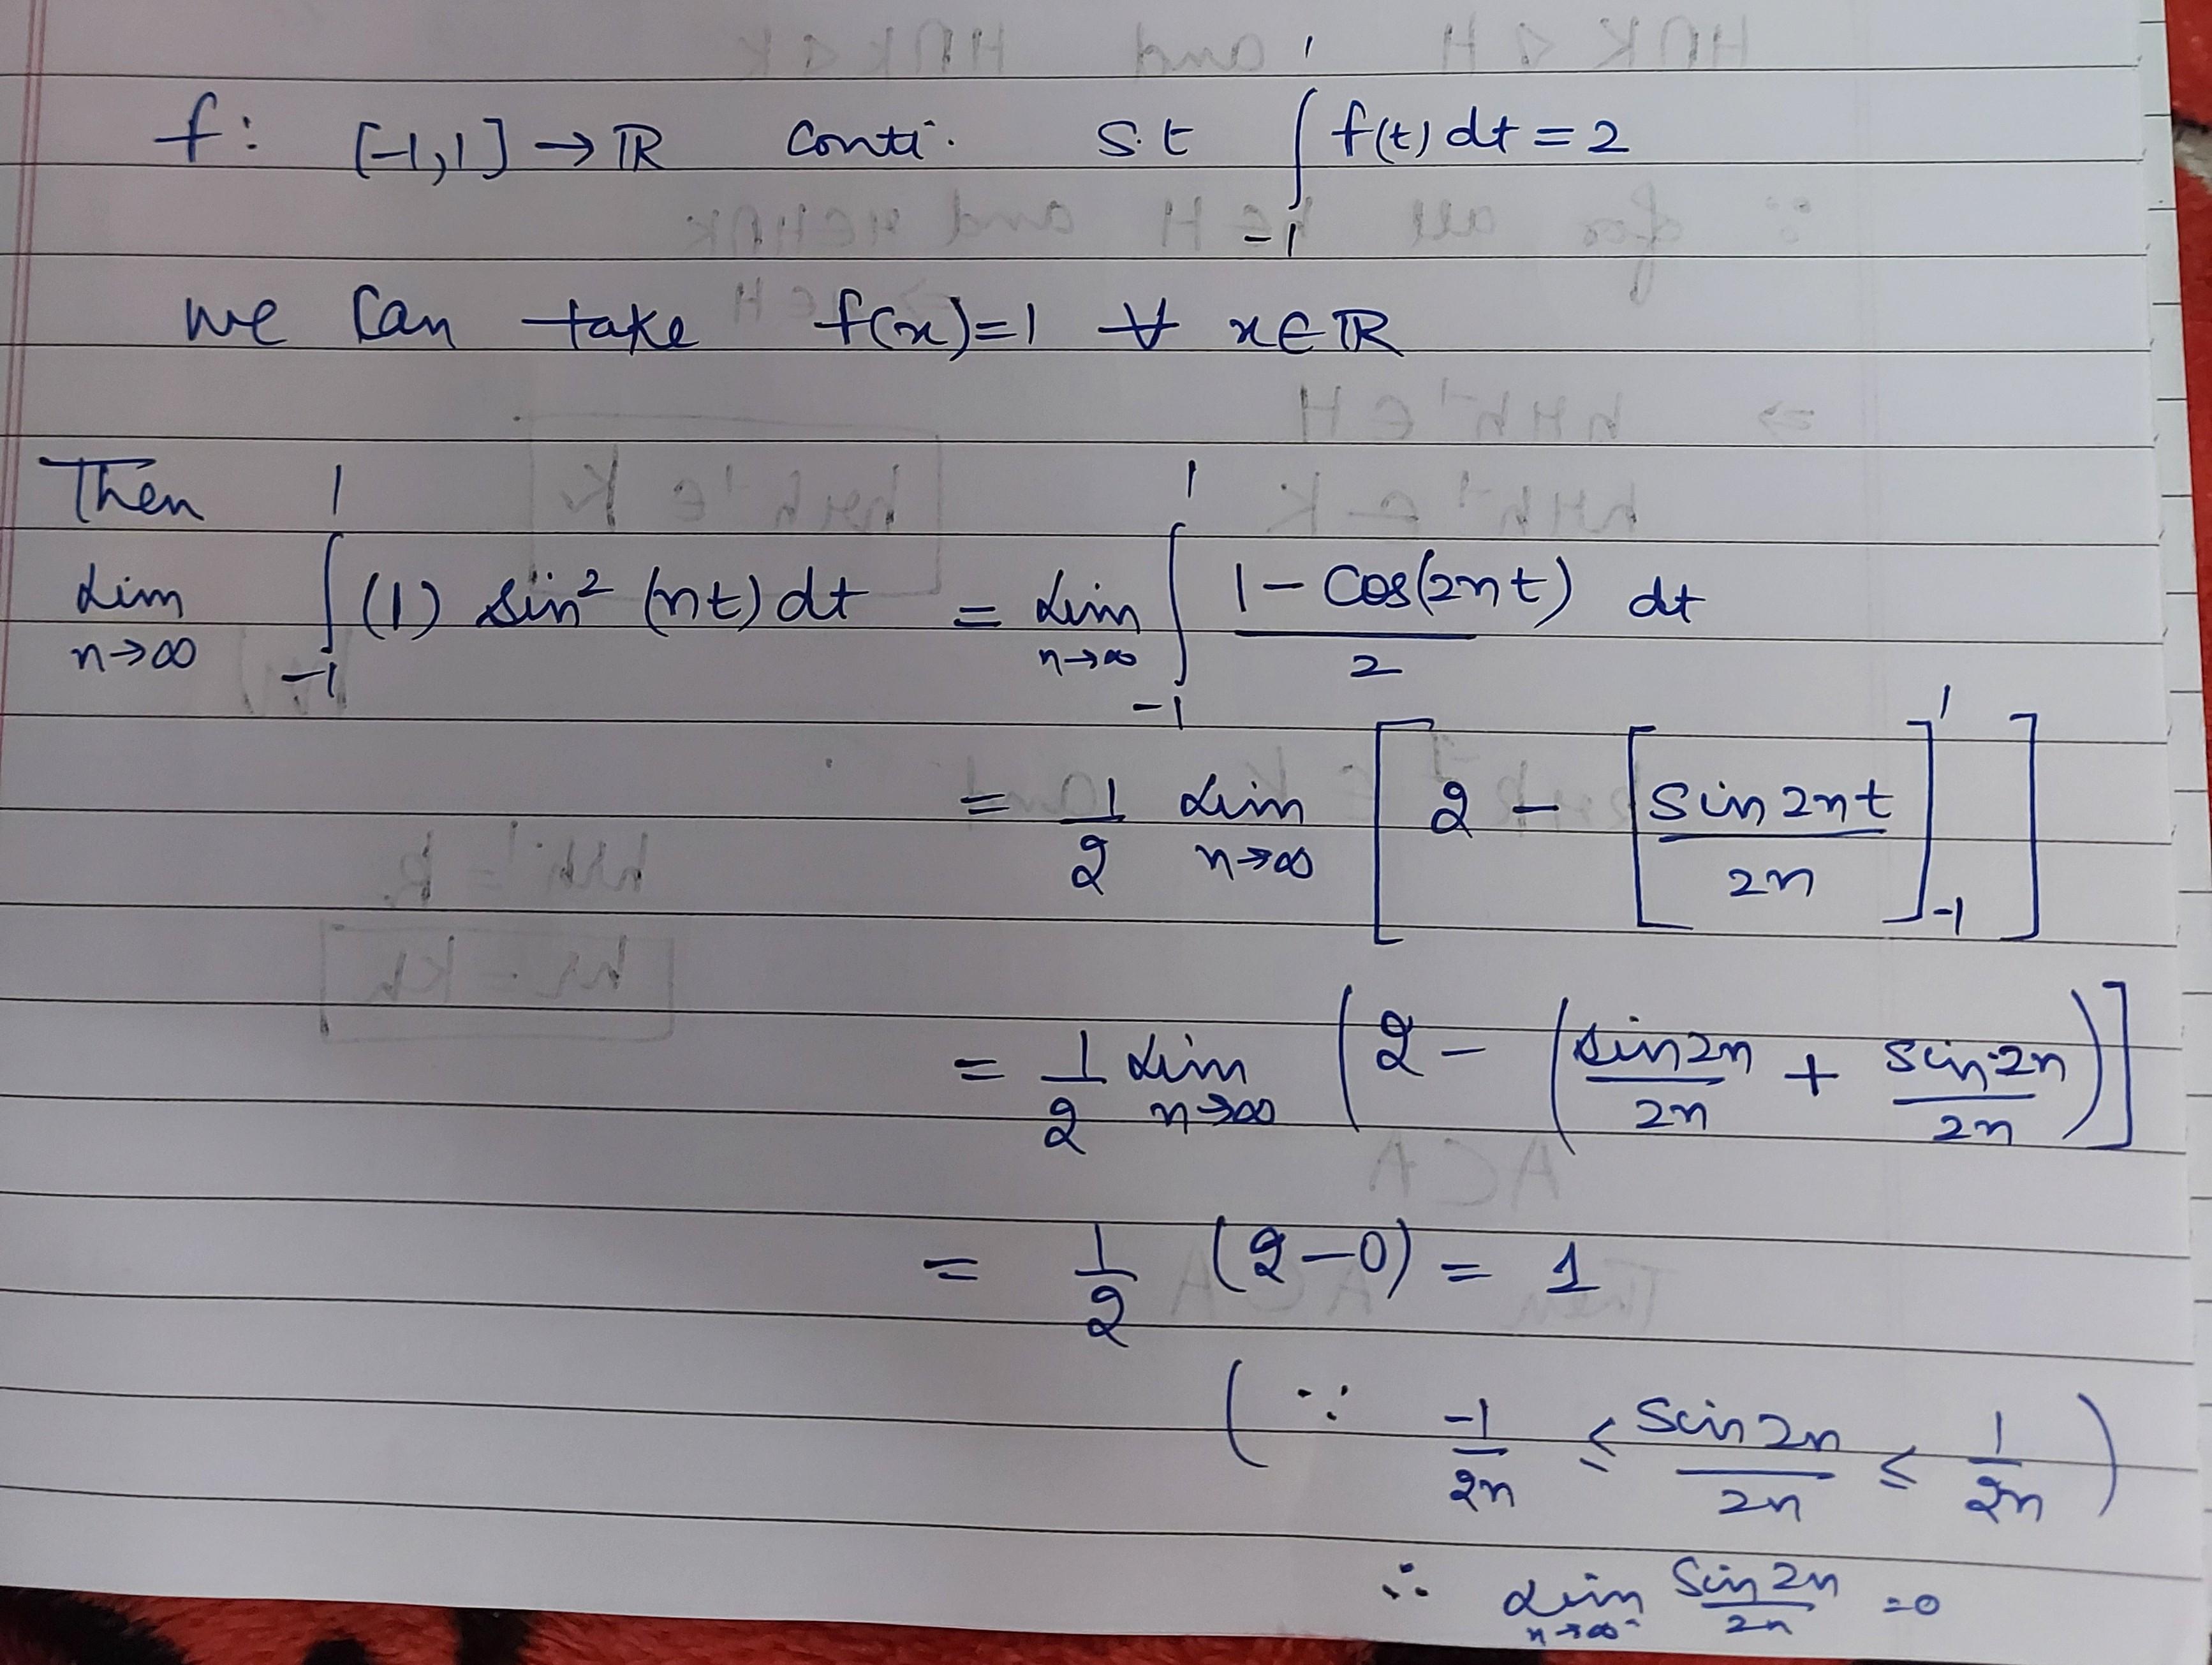 f: [-1,1] → ℝ conti. s.t ∫_{-1}^{1} f(t) dt = 2
we can take f(x)=1 ∀ x∈ℝ
Then
Lim_{n→∞} ∫_{-1}^{1} (1) sin² (nt) dt = Lim_{n→∞} ∫_{-1}^{1} (1 - Cos(2nt))/2 dt
= 1/2 Lim_{n→∞} [ 2 - [ (Sin 2nt)/(2n) ]_{-1}^{1} ]
= 1/2 Lim_{n→∞} ( 2 - ( (sin 2n)/(2n) + (Sin 2n)/(2n) ) ]
= 1/2 (2-0) = 1
( ∵ -1/2n ≤ (Sin 2n)/(2n) ≤ 1/2n )
∴ Lim_{n→∞} (Sin 2n)/(2n) = 0